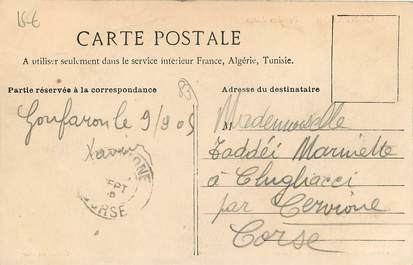 15€
CARTE POSTALE
A utiliser seulement dans le service intérieur France, Algérie, Tunisie.
Partie réservée à la correspondance
Adresse du destinataire
83
Gonfaron le 9/9 05
Xavier
SEPT
CORSE
M
Mademoiselle
Taddéi Mariette
à
par Cervione
Corse